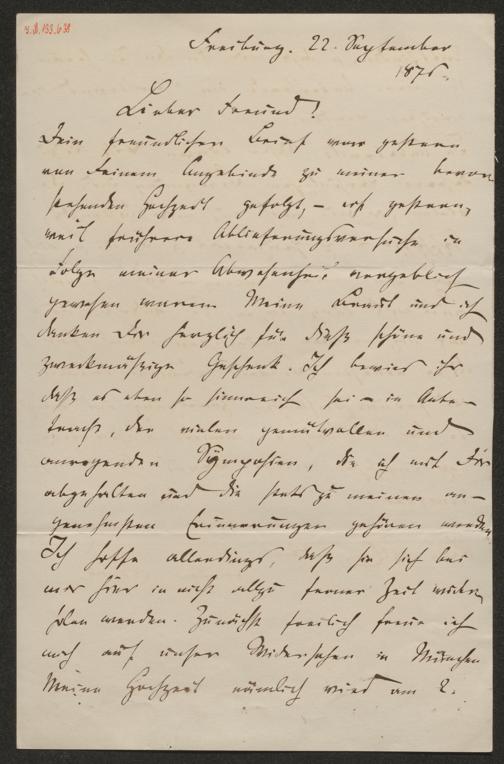 Freiburg. 22. September
1875.
Lieber Freund!
Dein freundlicher Brief war gestern
von Deinem Angebinde zu meiner bevor-
stehenden Hochzeit gefolgt, – erst gestern,
weil frühere Ablieferungsversuche in
Folge meiner Abwesenheit vergeblich
gewesen waren. Meine Braut und ich
danken Dir herzlich für dieß schöne und
zweckmäßige Geschenk. Ich bewies ihr
daß es eben so sinnreich sei – in Anbe-
tracht, der vielen gemütvollen und
anregenden Symposien, die ich mit Dir
abgehalten und die stets zu meinen an-
genehmsten Erinnerungen gehören werden.
Ich hoffe allerdings, daß sie sich bei
mir hier in nicht allzu ferner Zeit wieder-
holen werden. Zunächst freilich freue ich
mich auf unser Widersehen in München
Meine Hochzeit nämlich wird am 2.